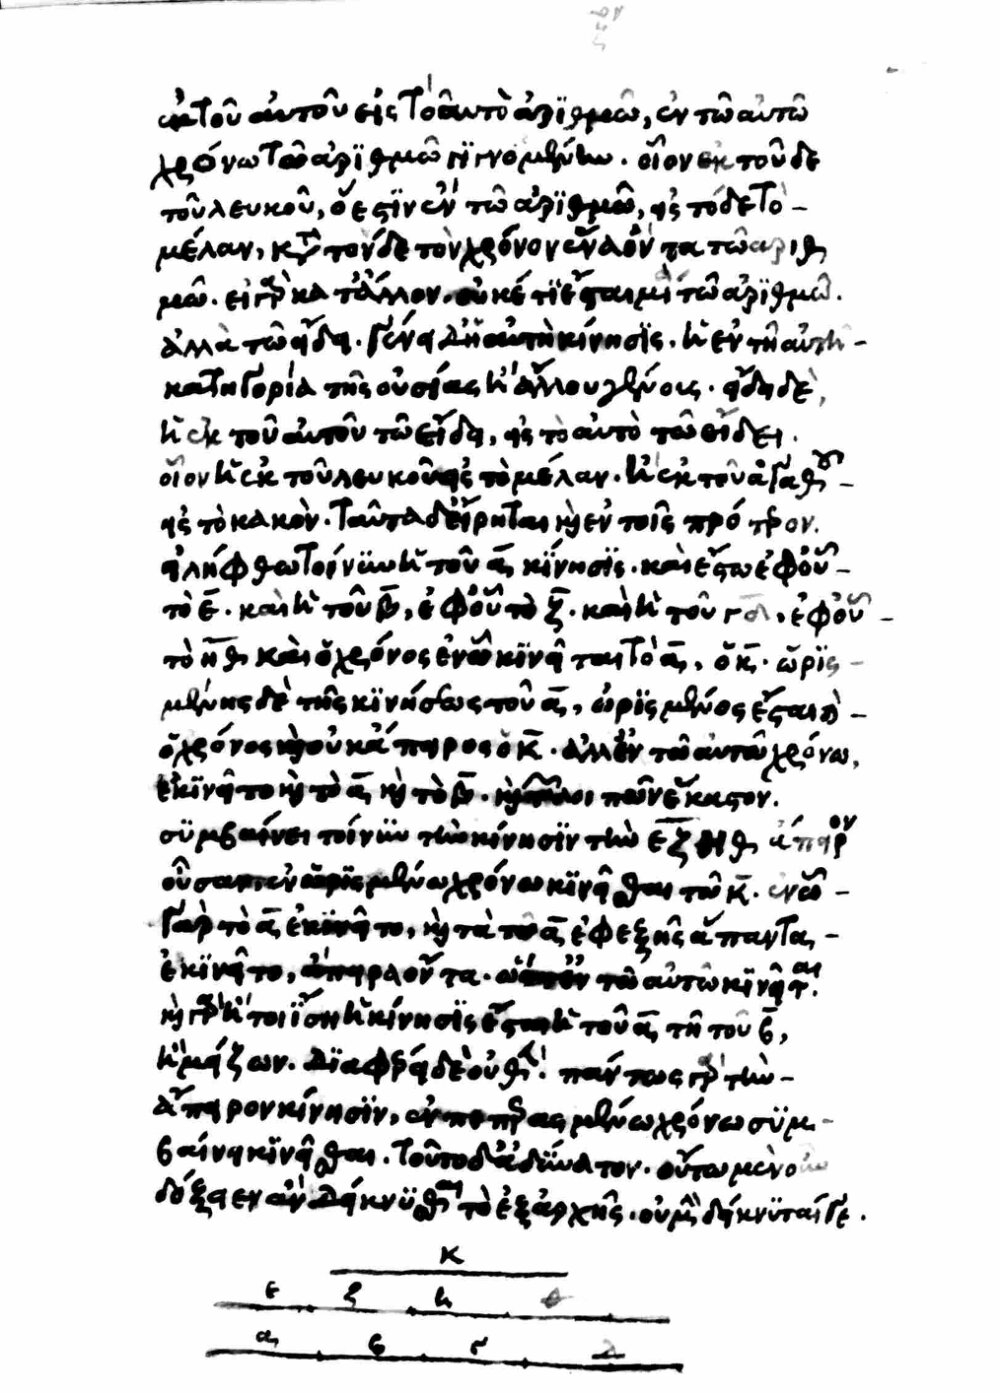 ἐκ τοῦ αὐτοῦ εἰς τὸ αὐτὸ ἀριθμῶ, ἐν τῶ αὐτῶ
χρόνω τῶ ἀριθμῶ γινομένην. οἷον ἐκ τοῦδε
τοῦ λευκοῦ, ὅ ἐστιν ἓν τῶ ἀριθμῶ, εἰς τόδε τὸ
μέλαν, κατὰ τόνδε τὸν χρόνον ἕνα ὄντα τῶ ἀριθ
μῶ. εἰ γὰρ κατ' ἄλλον, οὐκέτι ἔσται μία τῶ ἀριθμῶ.
ἀλλὰ τῶ εἴδει. γένει δὲ ἡ αὐτὴ κίνησις. ἡ ἐν τῆ αὐτῆ
κατηγορία τῆς οὐσίας ἢ ἄλλου γένους. εἴδει δὲ,
ἡ ἐκ τοῦ αὐτοῦ τῶ εἴδει, εἰς τὸ αὐτὸ τῶ εἴδει.
οἷον ἡ ἐκ τοῦ λευκοῦ εἰς τὸ μέλαν. ἢ ἐκ τοῦ ἀγαθοῦ
εἰς τὸ κακόν. ταῦτα δ' εἴρηται καὶ ἐν τοῖς πρότερον.
εἰλήφθω τοίνυν ἡ τοῦ α κίνησις. καὶ ἔστω ἐφ' οὗ
τὸ ε. καὶ ἡ τοῦ β, ἐφ' οὗ τὸ ζ. καὶ ἡ τοῦ γδ, ἐφ' οὗ
τὸ ηθ καὶ ὁ χρόνος ἐν ὧ κινεῖται τὸ α, ὁ κ. ὡρισ
μένης δὲ τῆς κινήσεως τοῦ α, ὡρισμένος ἔσται καὶ
ὁ χρόνος καὶ οὐκ ἄπειρος ὁ κ. ἀλλ' ἐν τῶ αὐτῶ χρόνω,
ἐκινεῖτο καὶ τὸ α καὶ τὸ β. καὶ τῶν λοιπῶν ἕκαστον.
συμβαίνει τοίνυν τὴν κίνησιν τὴν εζηθ ἄπειρον
οὖσαν ἐν ὡρισμένω χρόνω κινεῖσθαι τῶ κ. ἐν ὧ
γὰρ τὸ α ἐκινεῖτο, καὶ τὰ τῶ α ἐφεξῆς ἅπαντα
ἐκινεῖτο, ἄπειρα ὄντα. ὥστ' ἐν τῶ αὐτῶ κινεῖται.
καὶ γὰρ ἤτοι ἴση ἡ κίνησις ἔσται ἡ τοῦ α τῆ τοῦ β,
ἢ μείζων. διαφέρει δὲ οὐθέν. πάντως γὰρ τὴν
ἄπειρον κίνησιν, ἐν πεπερασμένω χρόνω συμ
βαίνει κινεῖσθαι. τοῦτο δ' ἀδύνατον. οὕτω μὲν οὖν
δόξειεν ἂν δείκνυσθαι τὸ ἐξ ἀρχῆς. οὐ μὴν δείκνυταί γε.
κ
ε ζ η θ
α β γ δ